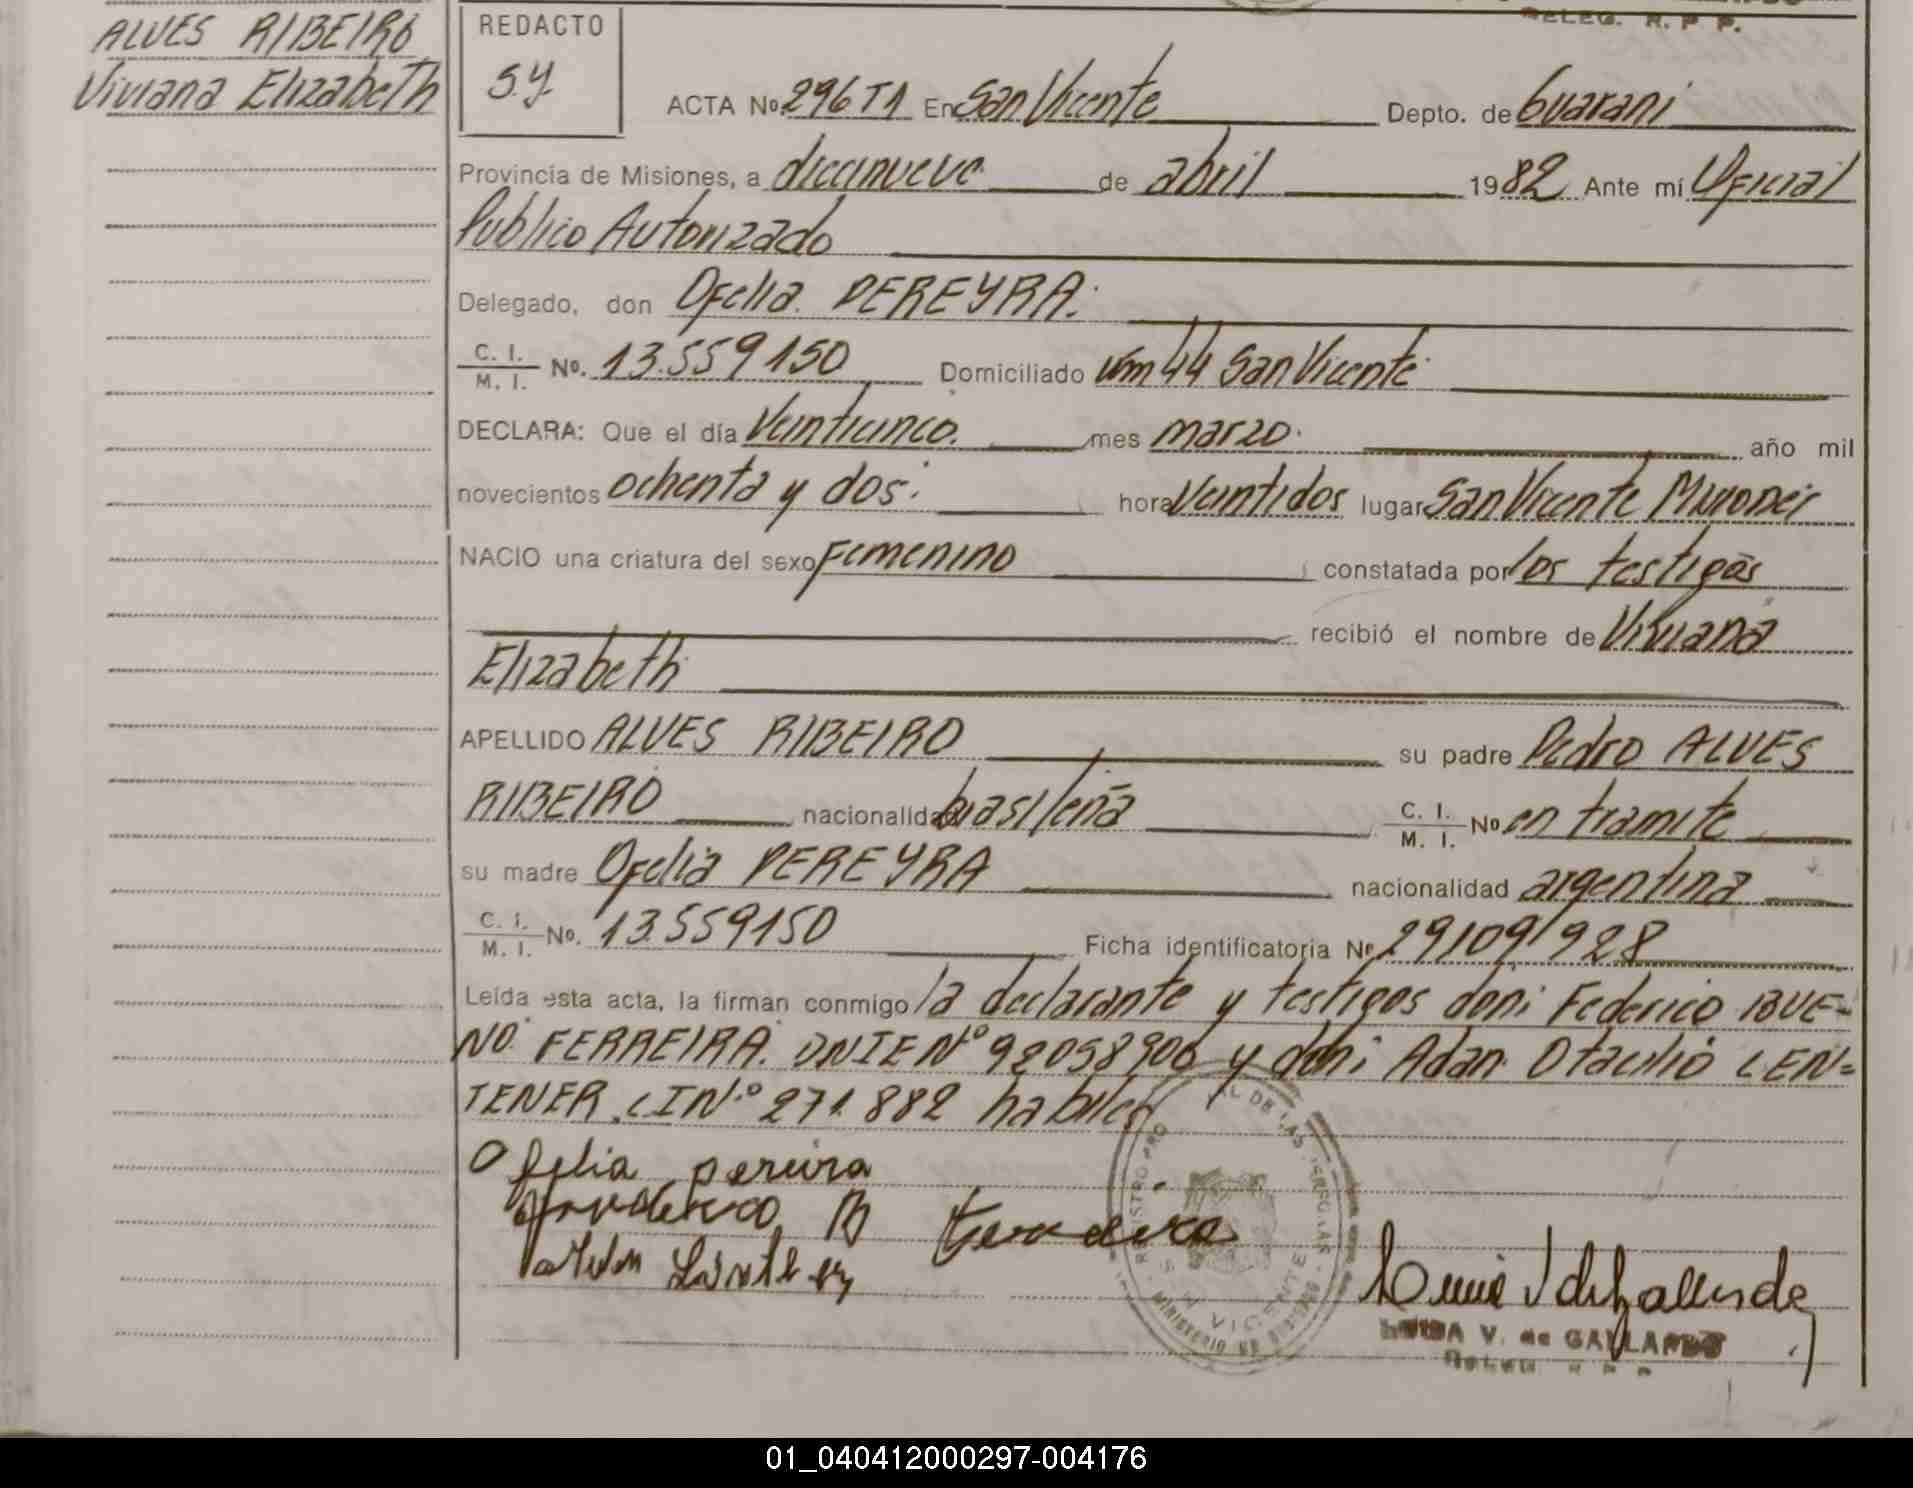 DELEG. R. P. P.
ALVES RIBEIRO
Viviana Elizabeth
REDACTO
S.Y.
ACTA No. 296 T1 En San Vicente Depto. de Guarani
Provincia de Misiones, a diecinueve de abril 1982 Ante mí Oficial
Publico Autorizado
Delegado, don Ofelia PEREYRA.
C. I. / M. I. No. 13.559150 Domiciliado Km 44 San Vicente
DECLARA: Que el día Veinticinco. mes marzo. año mil
novecientos ochenta y dos. hora Veintidos lugar San Vicente Misiones
NACIO una criatura del sexo Femenino constatada por los testigos
recibió el nombre de Viviana
Elizabeth
APELLIDO ALVES RIBEIRO su padre Pedro ALVES
RIBEIRO nacionalidad brasileña C. I. / M. I. No en tramite
su madre Ofelia PEREYRA nacionalidad argentina
C. I. / M. I. No. 13.559150 Ficha identificatoria Nº 29/09/928
Leída esta acta, la firman conmigo la declarante y testigos don: Federico BUE-
NO FERREIRA. DNIE Nº 92058906 y don: Adan Otacilio LEN=
TENER. CI Nº 271.882 habiles
Ofelia pereira
B Ferreira
REGISTRO PRO AL DE LAS PERSONAS
SAN VICENTE
MINISTERIO DE GOBIERNO
LUISA V. de GALLARDO
DELEG. R. P. P.
01_040412000297-004176